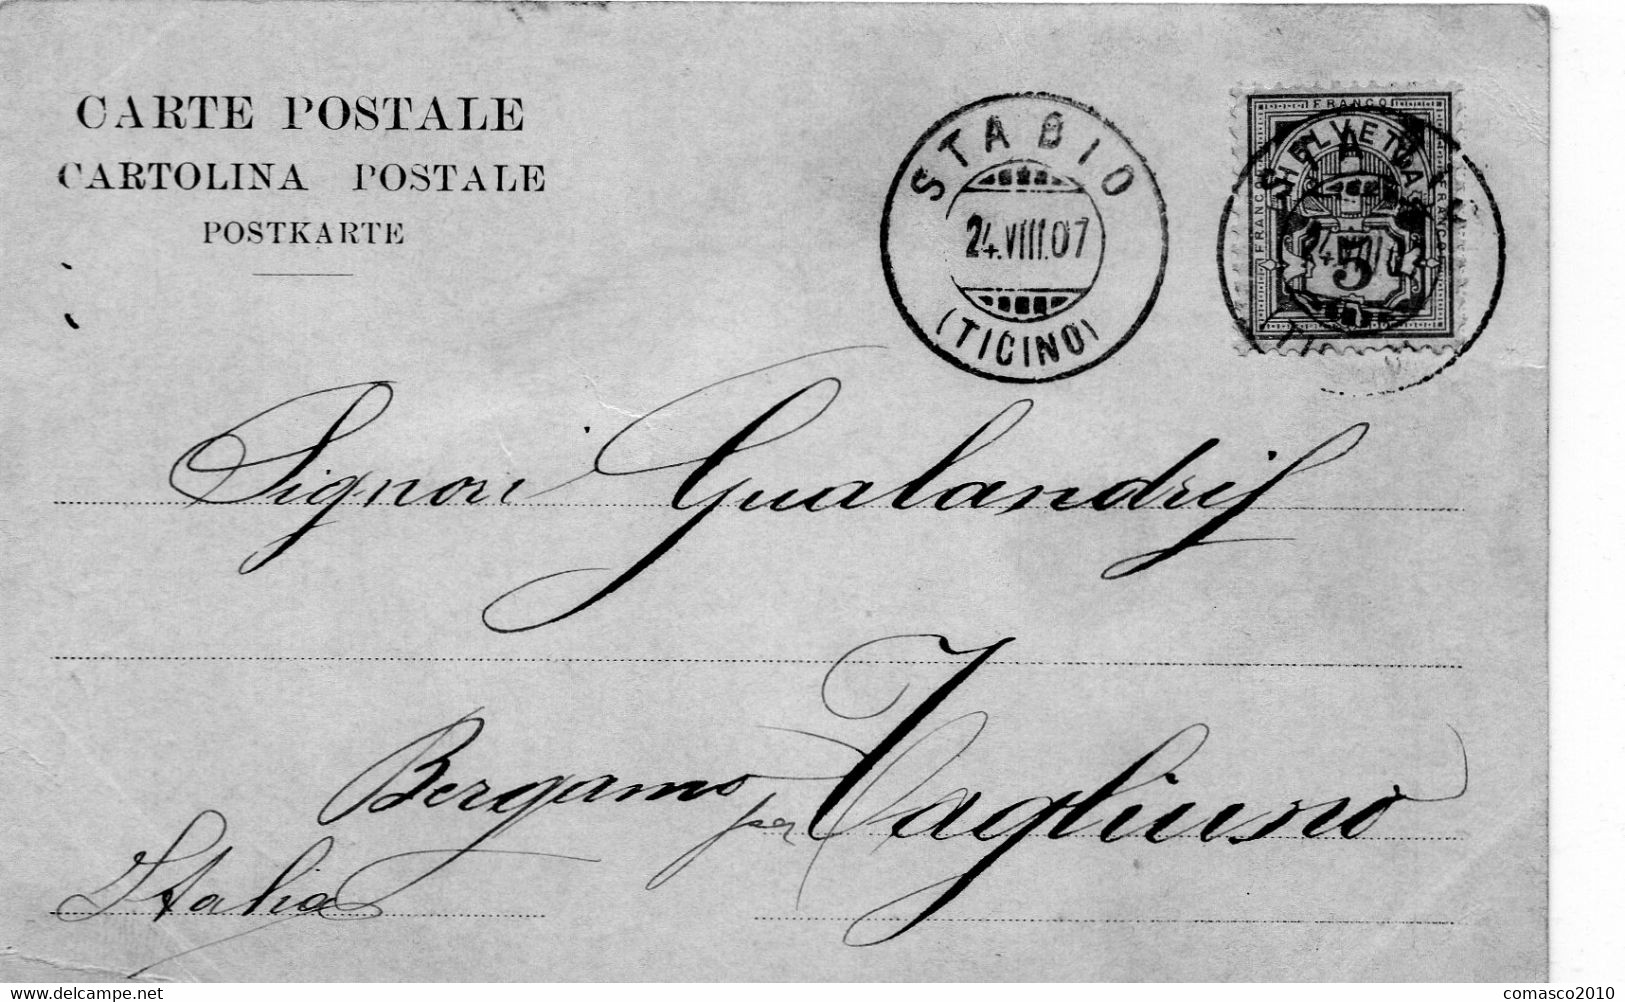 CARTE POSTALE
CARTOLINA POSTALE
POSTKARTE
STABIO
24.VIII.07
(TICINO)
FRANCO
HELVETIA
FRANCO
FRANCO
5
Signori Gualandris
Bergamo per Tagliuno
Italia
delcampe.net
comasco2010